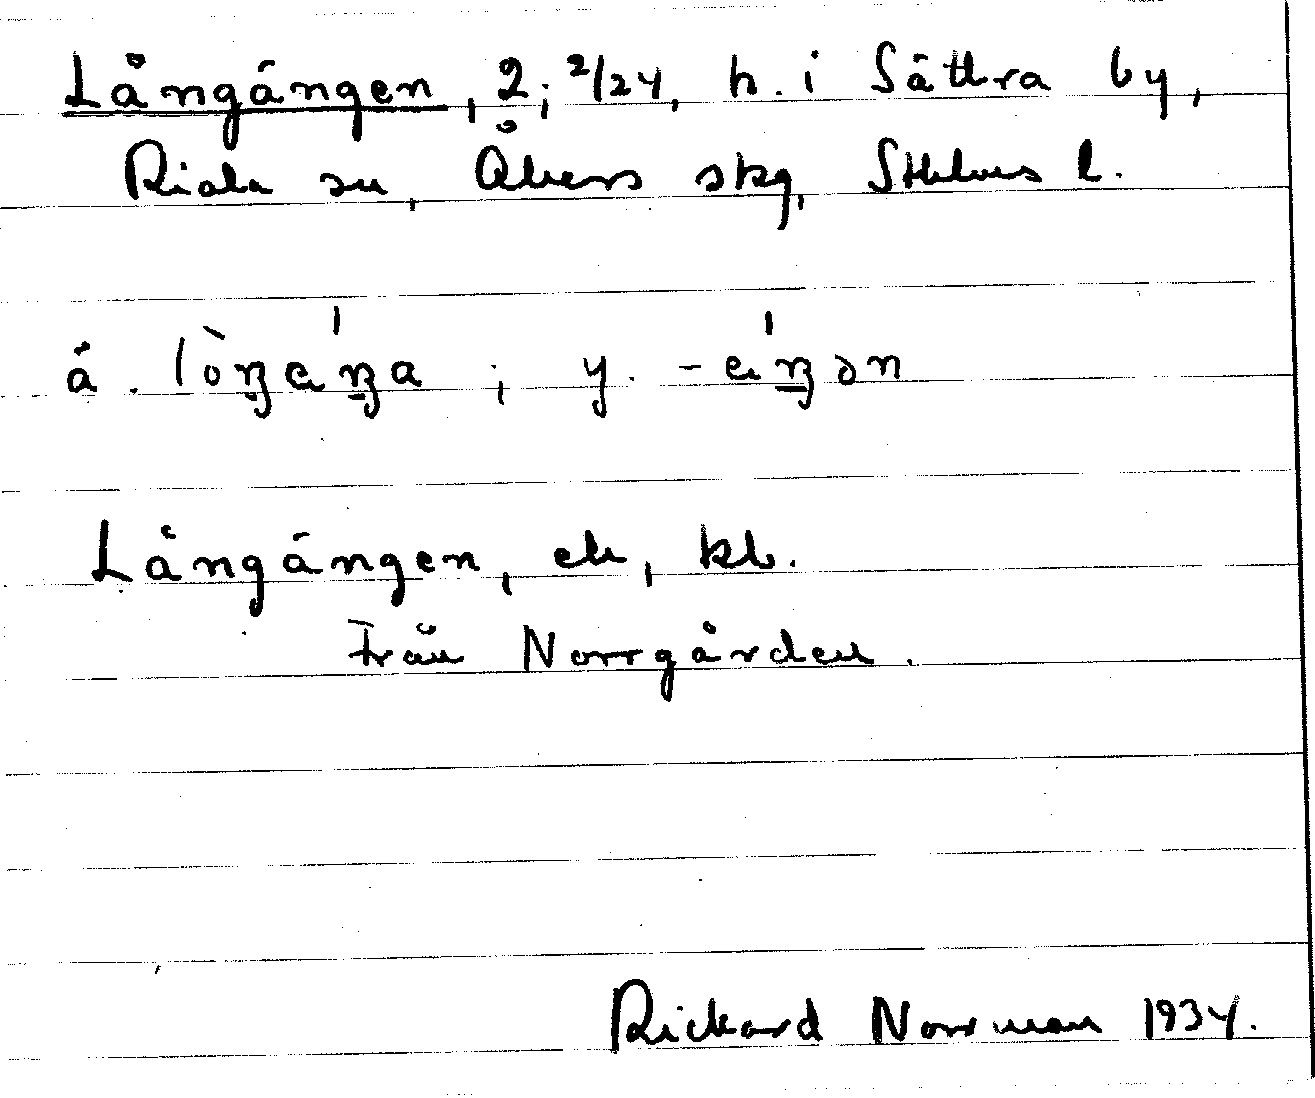 Långängen, 2; 2/24, h. i Sättra by,
Riala sn, Åkers skg, Sthlms l.
ä. lòŋɛ́ŋa ; y. -ɛ́ŋən
Långängen, ek, kb.
Från Norrgården.
Rickard Norrman 1934.